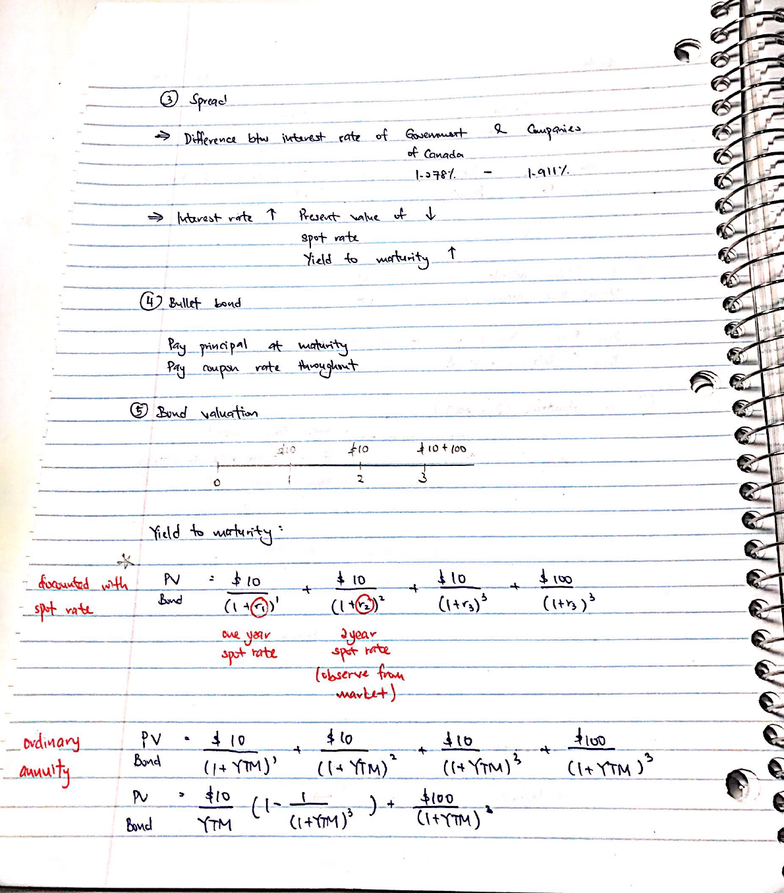 ③ Spread
⇒ Difference btw interest rate of Government & Companies
of Canada
1.278% - 1.911%
⇒ Interest rate ↑ Present value of ↓
spot rate
Yield to maturity ↑
④ Bullet bond
Pay principal at maturity
Pay coupon rate throughout
⑤ Bond valuation
$10 $10 $10 + 100
0 1 2 3
Yield to maturity :
discounted with spot rate
PV Bond = $10/(1+r₁)¹ + $10/(1+r₂)² + $10/(1+r₃)³ + $100/(1+r₃)³
one year 2 year
spot rate spot rate
(observe from
market)
ordinary annuity
PV Bond = $10/(1+YTM)¹ + $10/(1+YTM)² + $10/(1+YTM)³ + $100/(1+YTM)³
PV Bond = $10/YTM (1 - 1/(1+YTM)³) + $100/(1+YTM)³